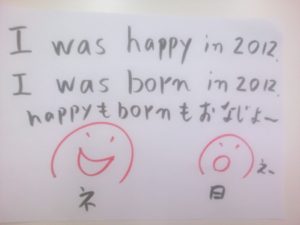 I was happy in 2012.
I was born in 2012.
happyもbornもおなじよ〜
ネ 日 え〜